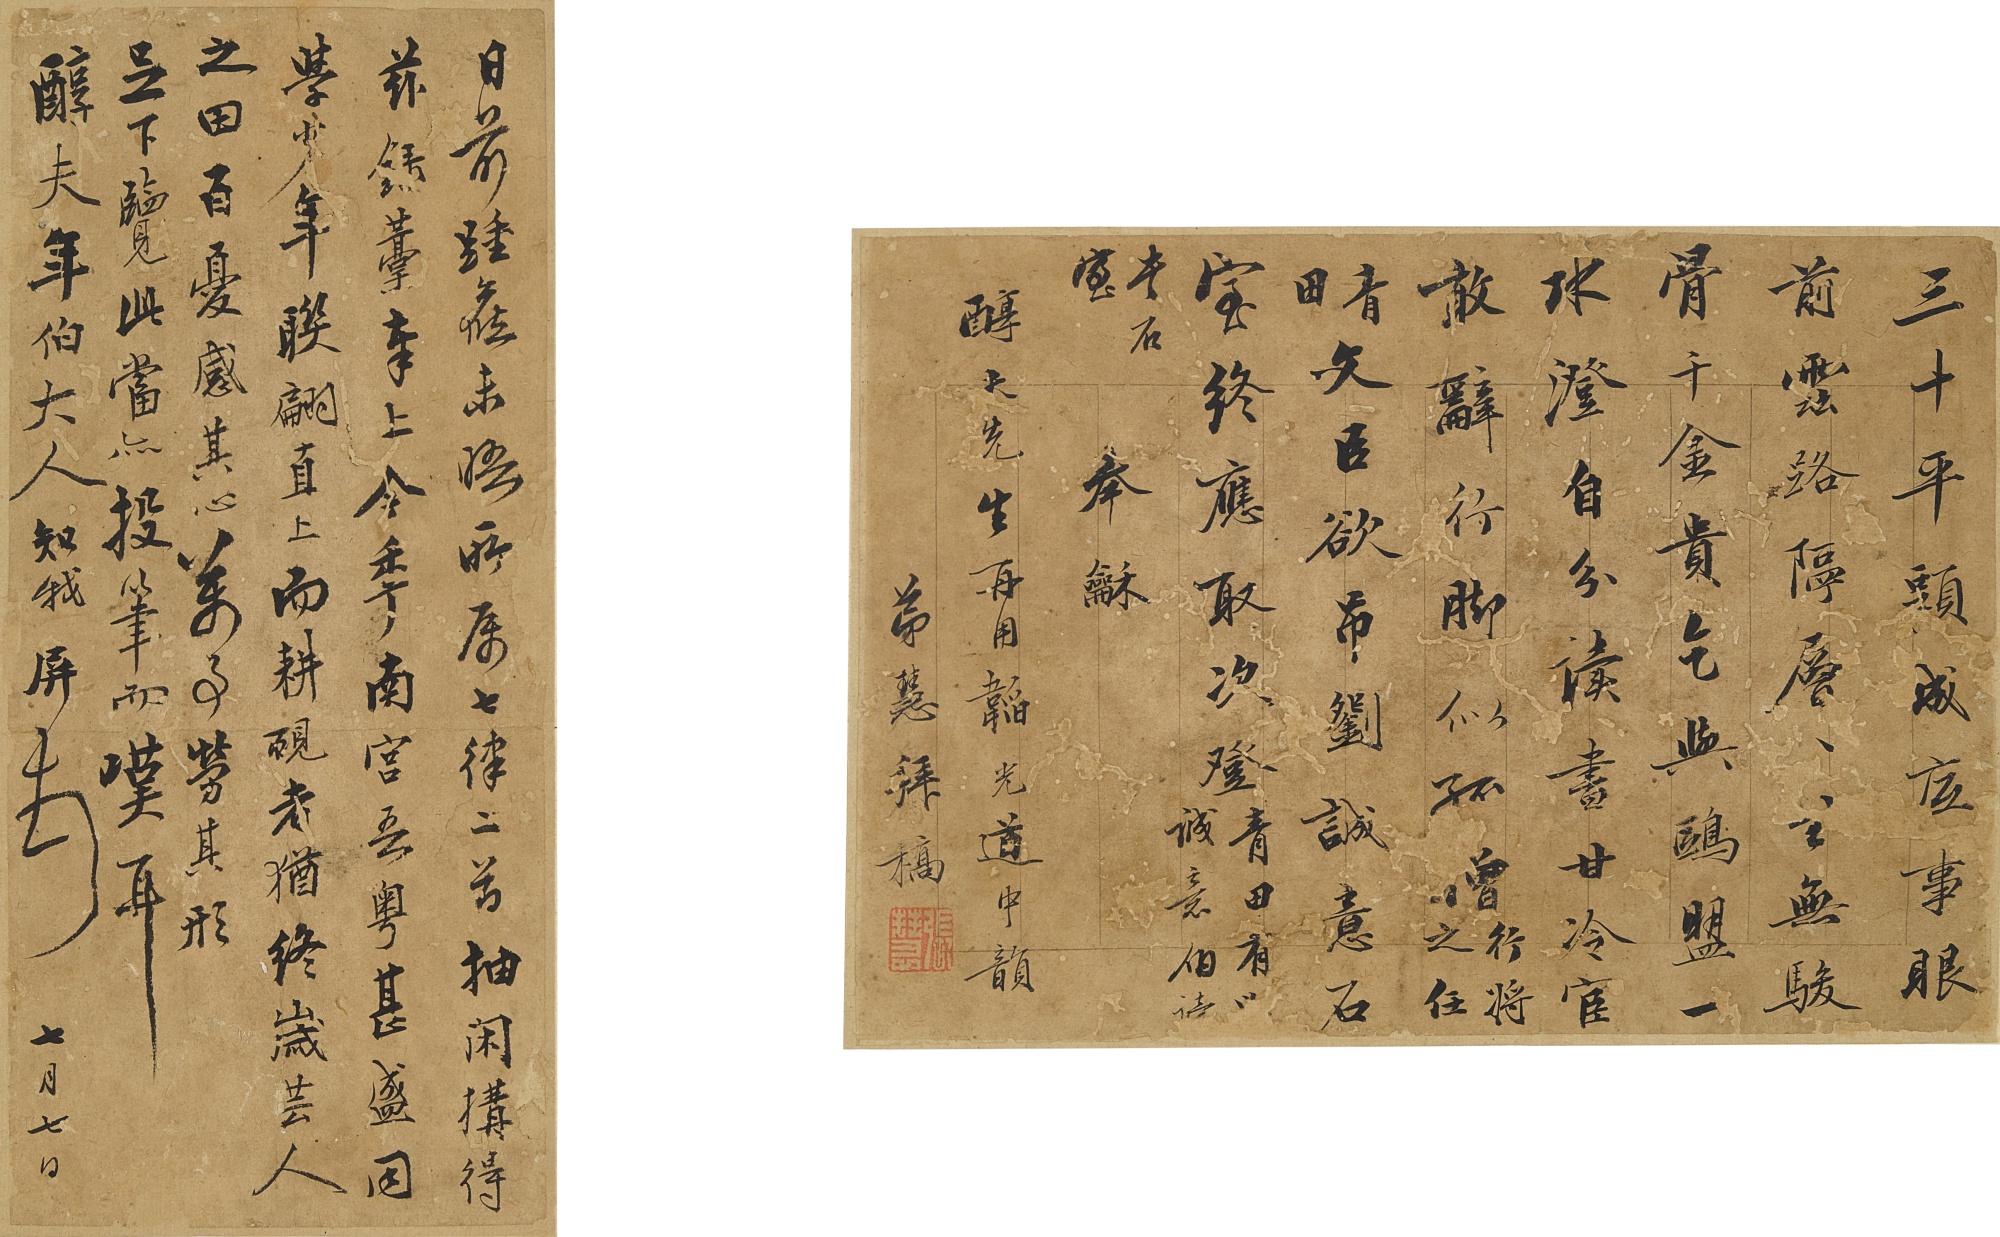 三十平頭成底事眼
前雲路隔層〻〻無駿
骨千金貴乞與鷗盟一
冰澄自分讀書甘冷宦
敢辭行脚似孤僧行將
之任
青
田文臣欲希劉誠意石
室終應取次登青田有
誠意伯讀
書石
室
奉龢
醇夫先生再用韜光道中韻
弟慧拜稿
日前踵候未晤所屬七律二首抽闲構得
茲録藁奉上今季南宮吾粤甚盛同
學少年聯翩直上而耕硯者猶終歲芸人
之田百憂感其心萬事勞其形
足下覽此當亦投筆而嘆耳
醇夫年伯大人知我屏
七月七日